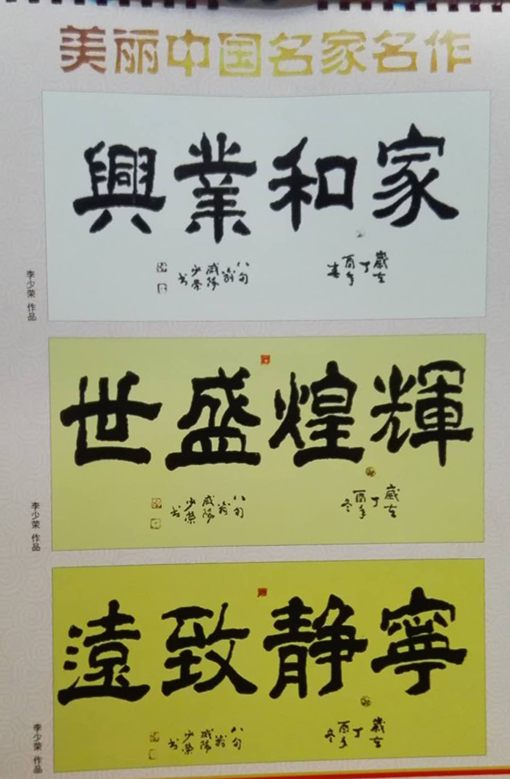 美丽中国名家名作
家和業興
歲在
丁
酉年
春
八旬
翁
咸陽
少榮
书
李少荣 作品
輝煌盛世
歲在
丁
酉年
冬
八旬
翁
咸陽
少榮
书
李少荣 作品
寧静致遠
歲在
丁
酉年
冬
八旬
翁
咸陽
少榮
书
李少荣 作品